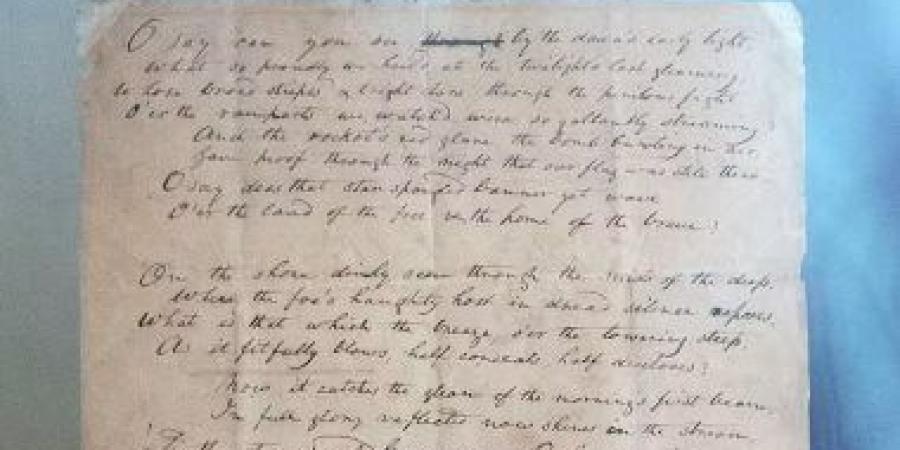 O say can you see through by the dawn's early light,
What so proudly we hail'd at the twilight's last gleaming,
Whose broad stripes & bright stars through the perilous fight
O'er the ramparts we watch'd were so gallantly streaming?
And the rocket's red glare, the bomb bursting in air,
Gave proof through the night that our flag was still there
O say does that star spangled banner yet wave
O'er the land of the free & the home of the brave?
On the shore dimly seen through the mists of the deep,
Where the foe's haughty host in dread silence reposes,
What is that which the breeze, o'er the towering steep,
As it fitfully blows, half conceals, half discloses?
Now it catches the gleam of the morning's first beam,
In full glory reflected now shines in the stream